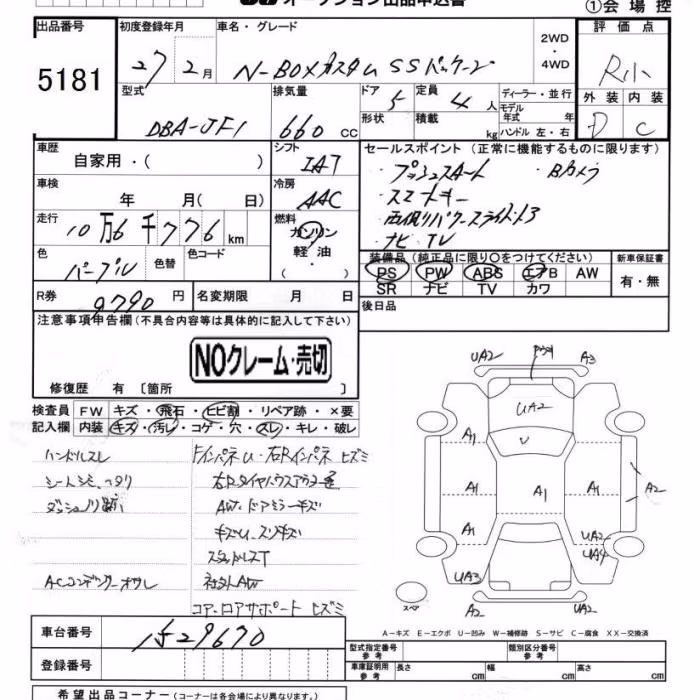 オークション出品申込書
①会場控
出品番号 5181
初度登録年月 27 2月
車名・グレード N-BOXカスタム SSパッケージ
2WD・4WD
評価点 R小
外装 D 内装 C
型式 DBA-JF1
排気量 660 CC
ドア 5
形状
定員 4 人
積載 kg
ディーラー・並行
モデル年式 年
ハンドル 左・右
車歴 自家用・( )
シフト IAT
車検 年 月( 日)
冷房 AAC
走行 10万6千776 km
燃料 ガソリン 軽油・( )
色 パープル
色替
色コード
R券 9790 円
名変期限 月 日
セールスポイント(正常に機能するものに限ります)
・プッシュスタート ・Bカメラ
・スマートキー
・両側パワースライドドア
・ナビ TV
装備品(純正品に限り〇をつけてください)
PS PW ABS エアB AW
SR ナビ TV カワ
新車保証書 有・無
後日品
注意事項申告欄(不具合内容等は具体的に記入して下さい)
NOクレーム・売切
修復歴 有〔箇所 〕
検査員記入欄
FW キズ・飛石・ヒビ割・リペア跡・×要
内装 キズ・汚レ・コゲ・穴・スレ・キレ・破レ
ハンドルスレ
シートシミ、ヘタリ
ダッシュノリ跡
ACコンデンサーオサレ
FインパネU・右Rインパネ ヒズミ
右Rタイヤハウスアウター歪
AW・ドアミラーキズ
キズU、スリキズ
スタッドレスT
社外AW
コア・ロアサポート ヒズミ
UA2 A3
UA2
U
A1 A1 A1 A1 A2
A1 UA2
UA4
UA3
A2 UA2
スペア
A−キズ E−エクボ U−凹み W−補修跡 S−サビ C−腐食 XX−交換済
車台番号 1529670
登録番号
型式指定番号 参考
類別区分番号 参考
車庫証明用 参考 長さ cm 幅 cm 高さ cm
希望出品コーナー(コーナーは各会場により異なります。)